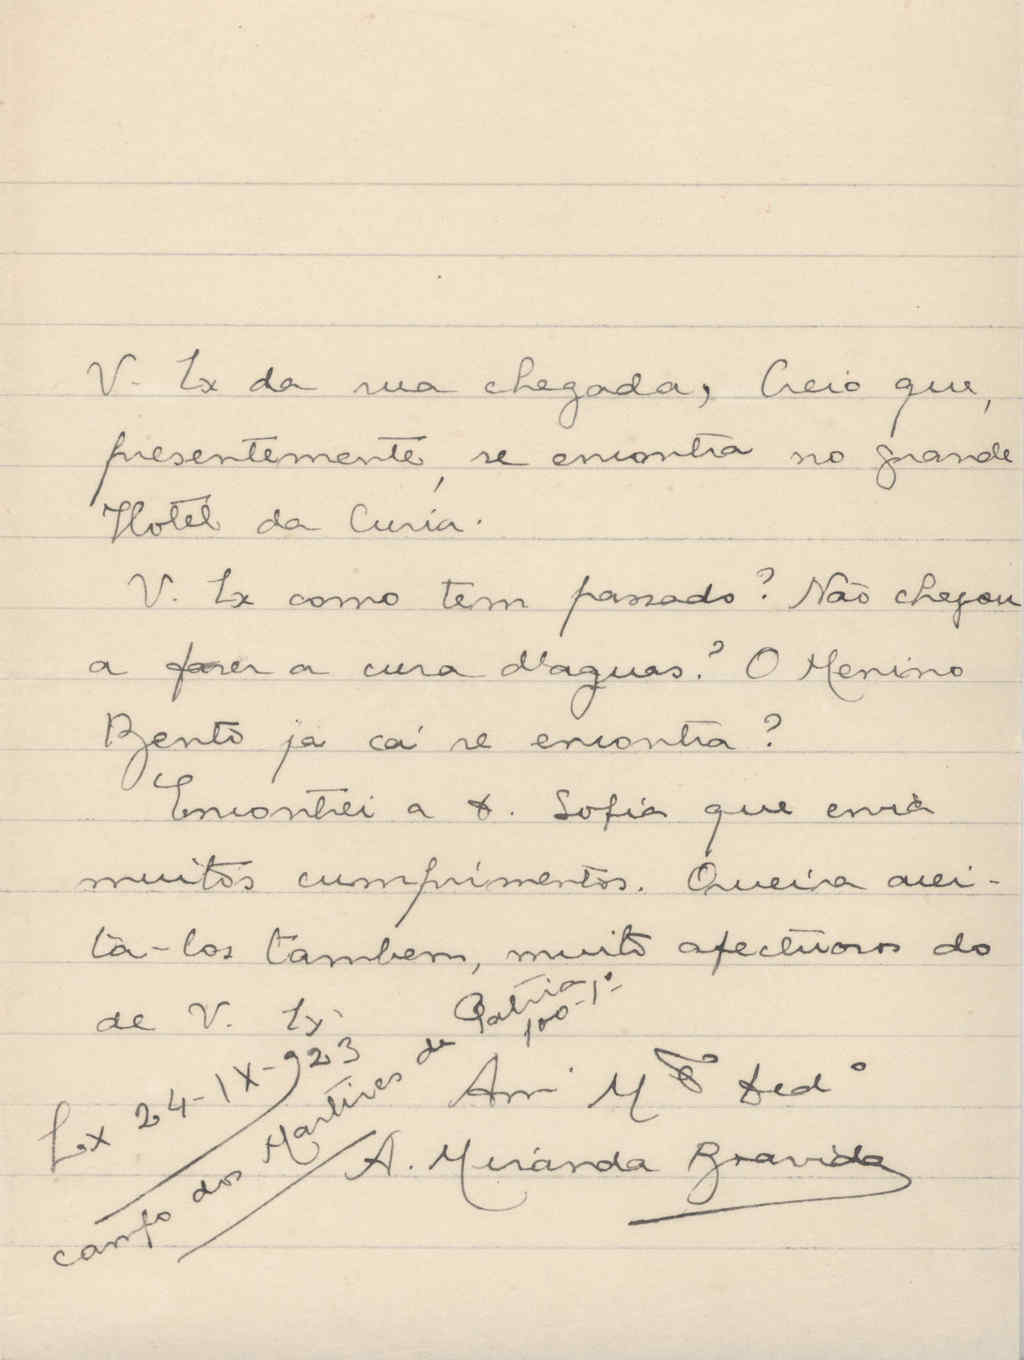 V. Ex da sua chegada, Creio que,
presentemente, se encontra no grande
Hotel da Curia.
V. Ex como tem passado? Não chegou
a fazer a cura d'aguas? O Menino
Bento já cá se encontra?
Encontrei a D. Sofia que envia
muitos cumprimentos. Queira acei-
tá-los tambem, muito afectuosos do
de V. Ex.
Amº Mtº Dedº
A. Miranda Bravida
Lx 24-IX-923
campo dos Martires da Patria
100-1º